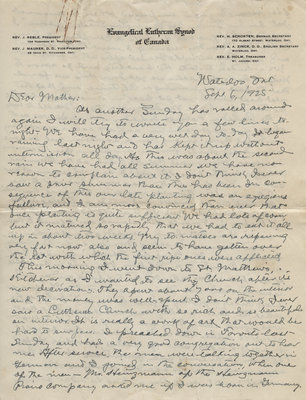 Evangelical Lutheran Synod
of Canada
REV. J. REBLE, PRESIDENT
REV. J. MAURER, D. D., VICE-PRESIDENT
REV. H. SCHORTEN, GERMAN SECRETARY
REV. A. A. ZINCK, D. D., ENGLISH SECRETARY
WATERLOO, ONT.
REV. E. HOLM, TREASURER
Waterloo, Ont
Sept 6, 1925
Dear Mother:
As another Sunday has rolled around
again I will try to write you a few lines to-
night. We have had a very wet day to-day. It began
raining last night and has kept right without
intermission all day. As this was about the second
rain we have had all summer we have no
reason to complain about it. I don't think I ever
saw a drier summer than this has been. In con-
sequence of this our late planting was an egregious
failure, and I am more convinced than ever that
once planting is quite sufficient. We had lots of corn,
but it matured so rapidly that we had to eat it all
up in about two weeks. My tomatoes are ripening
very fast now also and seem to have gotten over
the rot with which the first ripe ones were afflicted.
This morning I went down to St. Matthews,
Kitchener as I wanted to see the Church, after the
new decorations. They spent on the interior
and the money was well spent. I don't think I ever
saw a Lutheran Church with so rich and so beautiful
an interior. It is really a work of art that would be
hard to surpass. I preached down in Toronto last
Sunday and had a very good congregation out to hear
me. After service, the men were talking together in
German and I joined in the conversation, when one
of the men - Mr. Heintzmann of the Heintzmann
Piano Company asked me if I was born in Germany.